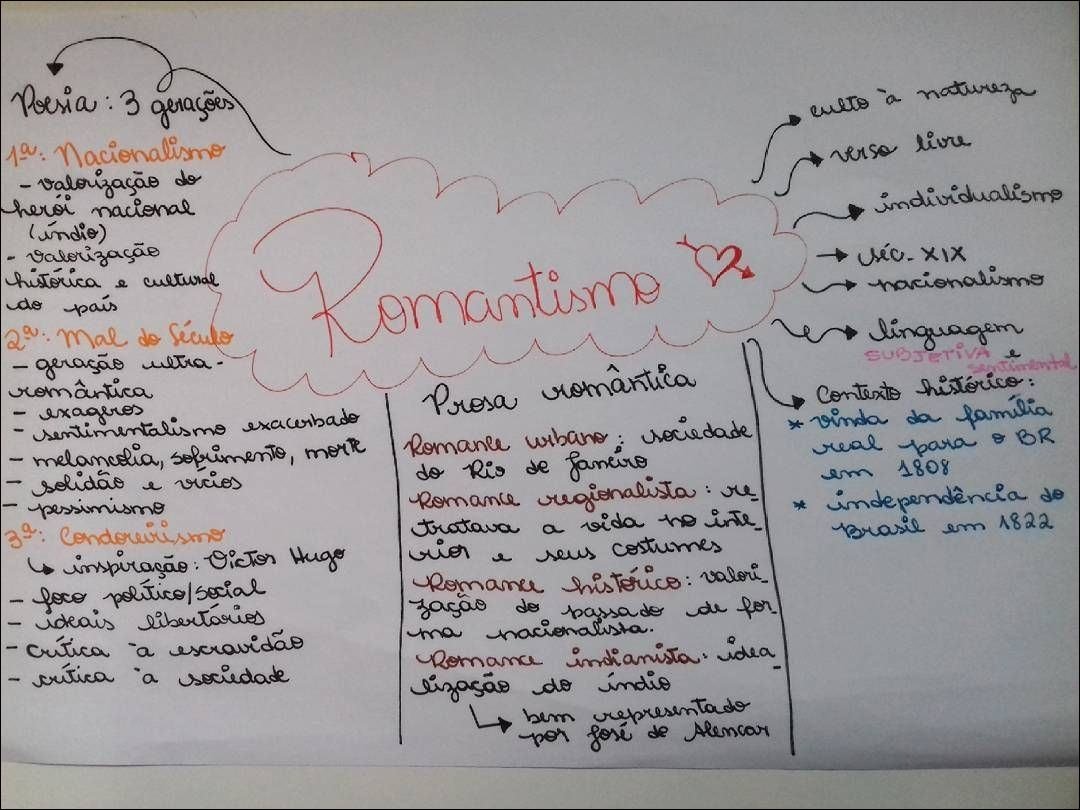 Romantismo
Poesia: 3 gerações
1ª: Nacionalismo
- valorização do
herói nacional
(índio)
- valorização
histórica e cultural
do país
2ª: Mal do Século
- geração ultra-
romântica
- exageros
- sentimentalismo exacerbado
- melancolia, sofrimento, morte
- solidão e vícios
- pessimismo
3ª: Condoreirismo
inspiração: Victor Hugo
- foco político/social
- ideais libertários
- crítica à escravidão
- crítica à sociedade
Prosa romântica
Romance urbano: sociedade
do Rio de Janeiro
Romance regionalista: re-
tratava a vida no inte-
rior e seus costumes
Romance histórico: valori-
zação do passado de for-
ma nacionalista.
Romance indianista: idea-
lização do índio
bem representado
por José de Alencar
culto à natureza
verso livre
individualismo
séc. XIX
nacionalismo
linguagem
SUBJETIVA e
sentimental
Contexto histórico:
* vinda da família
real para o BR
em 1808
* independência do
Brasil em 1822